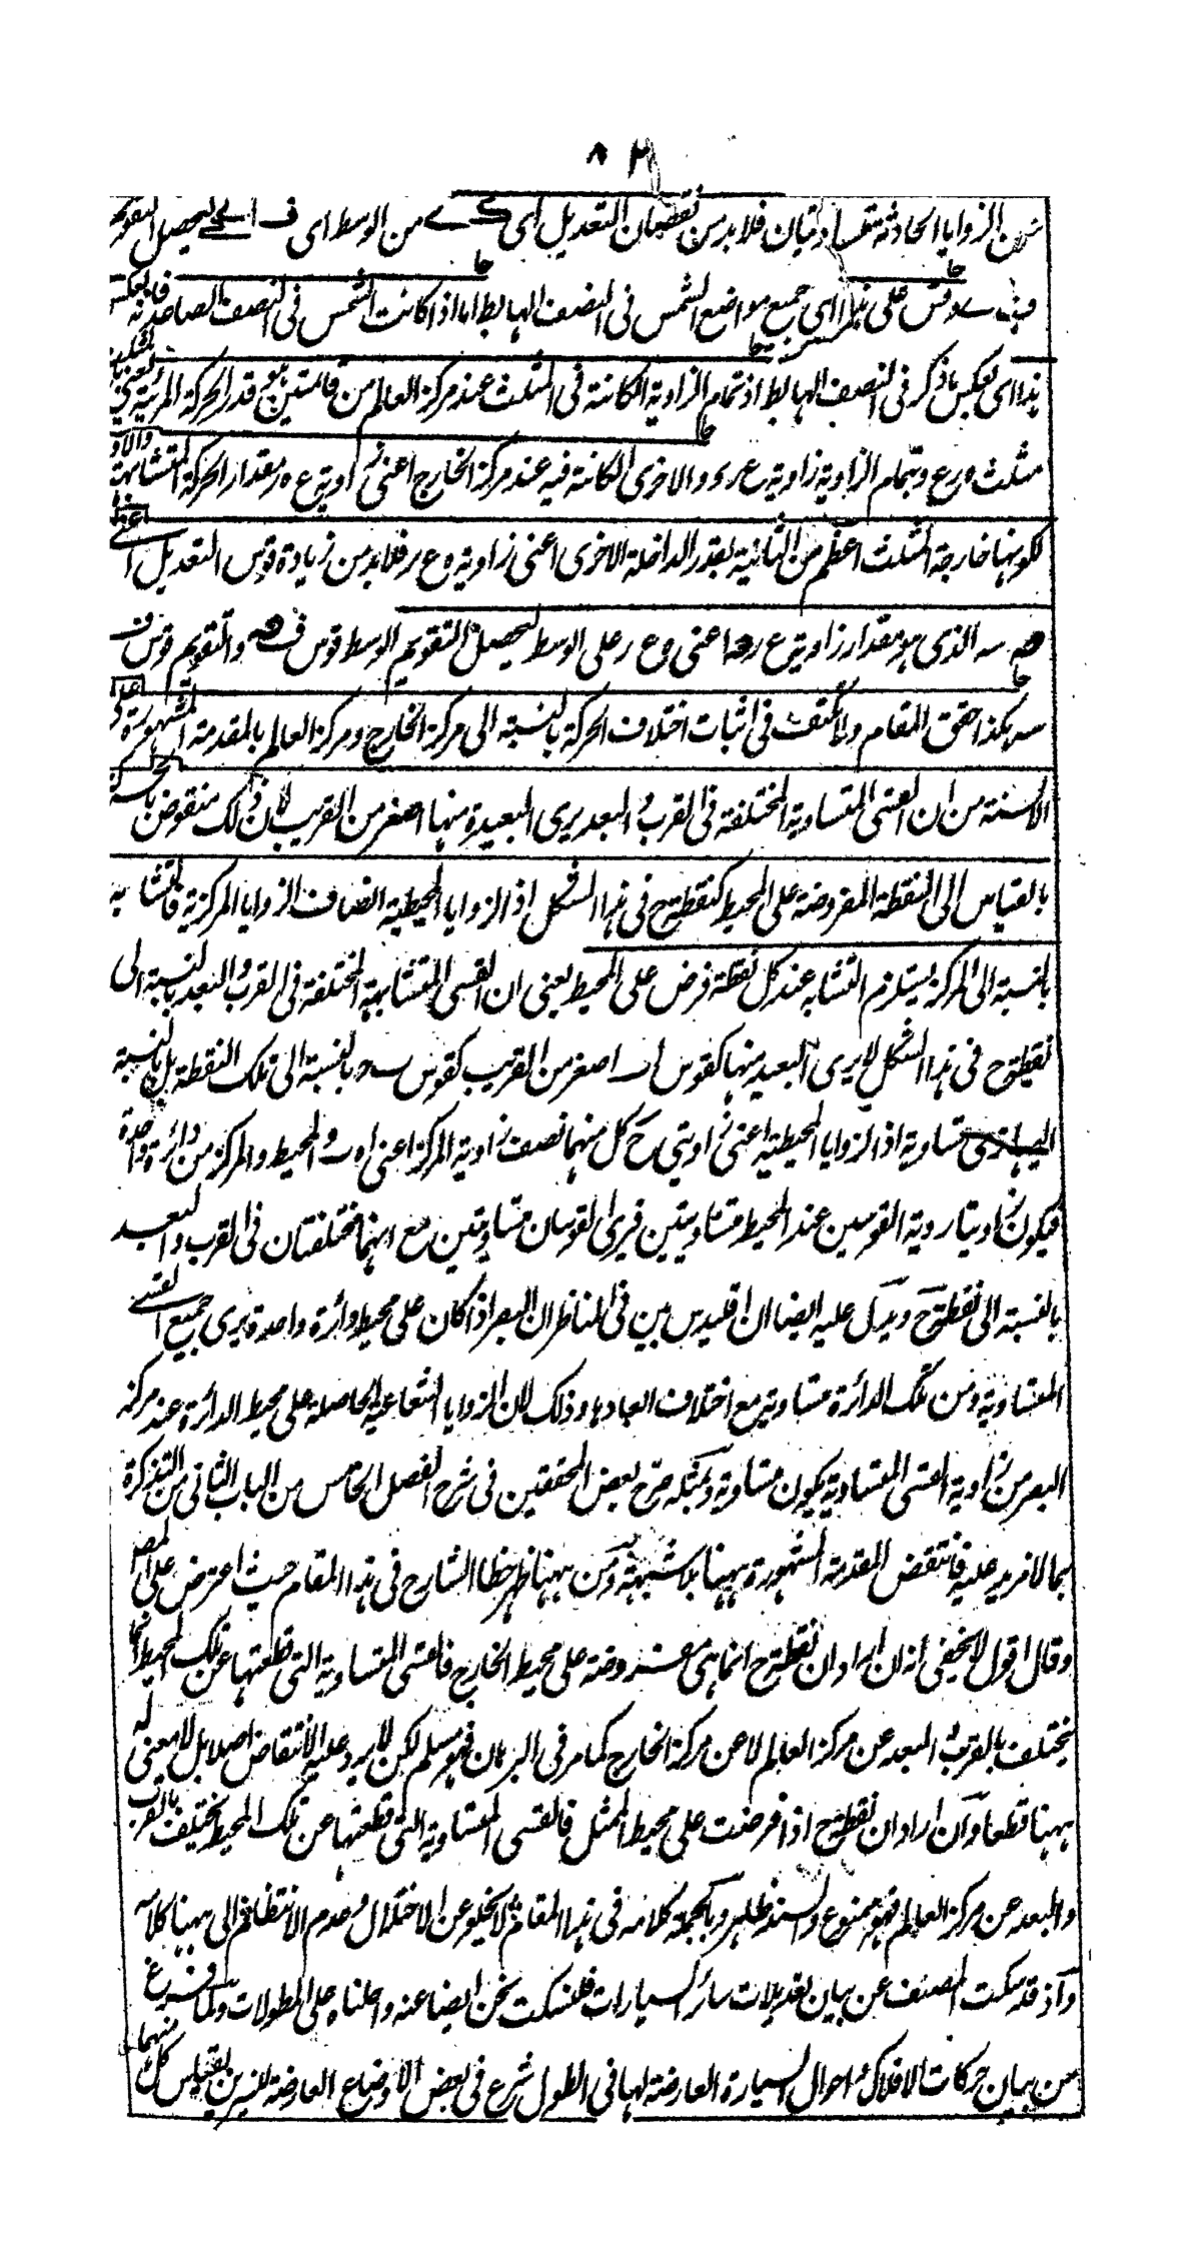 ٨٢
من الزوايا الحادثة متساويتان فلابد من نقصان التعديل اى من الوسط اى ف ليحصل التقويم
وقس على هذا اى جميع مواضع الشمس فى النصف الهابط اما اذا كانت الشمس فى النصف الصاعد فانه بعكس
هذا اى بعكس ما ذكر فى النصف الهابط اذ تمام الزاوية الكائنة فى المثلث عند مركز العالم من قائمتين هو قدر الحركة المرئية
مثلث ه ر ع وتمام الزاوية زاوية والاخرى الكائنة فيه عند مركز الخارج اعنى زاوية مقدار الحركة المتشابهة
لكونها خارجة المثلث اعظم من الثانية بقدر الداخلة الاخرى اعنى زاوية ه ع ر فلابد من زيادة قوس التعديل
سه الذى هو مقدار زاوية اعنى ه ع ر على الوسط ليحصل التقويم الوسط قوس والتقويم قوس ف
سه هكذا حقق المقام ولا تكتف فى اثبات اختلاف الحركة بالنسبة الى مركز الخارج ومركز العالم بالمقدمة المشهورة على
الالسنة من ان القسى المتساوية المختلفة فى القرب والبعد يرى البعيدة منها اصغر من القريب لان ذلك منقوض
بالقياس الى النقطة المفروضة على المحيط كنقطة ح فى هذا الشكل اذ الزوايا المحيطية انصاف الزوايا المركزية فالتشابه
بالنسبة الى المركز يستلزم التشابه عند كل نقطة فرض على المحيط يعنى ان القسى المتشابهة المختلفة فى القرب والبعد بالنسبة الى
نقطة ح فى هذا الشكل لا يرى البعيد منها كقوس ا ب اصغر من القريب كقوس ب د بالنسبة الى تلك النقطة بل بالنسبة
اليها متساوية اذ الزوايا المحيطية اعنى زاويتى ح كل منهما نصف زاوية المركز اعنى والمحيط والمركز من دائرة واحدة
فيكون زاويتا روية القوسين عند المحيط متساويتين فيرى القوسان متساويتين مع انهما مختلفتان فى القرب والبعد
بالنسبة الى نقطة ح ويدل عليه ايضا ان اقليدس بين فى المناظر ان البصر اذا كان على محيط دائرة واحدة يرى جميع القسى
المتساوية من تلك الدائرة متساوية مع اختلاف ابعادها وذلك لان الزوايا الشعاعية الحاصلة على محيط الدائرة عند مركز
البصر من زاوية القسى المتساوية يكون متساوية وبمثله صرح بعض المحققين فى شرح الفصل الخامس من الباب الثانى من التذكرة
بما لا مزيد عليه فانتقض المقدمة المشهورة ههنا بلا شبهة ومن ههنا ظهر خطا الشارح فى هذا المقام حيث اعترض على المصـ
وقال اقول لا يخفى انه ان اراد ان نقطة ح انما هى مفروضة على محيط الخارج فالقسى المتساوية التى قطعتها عن تلك المحيط انما
يختلف بالقرب والبعد عن مركز العالم لا عن مركز الخارج كما مر فى البرهان فهو مسلم لكن لا يرد عليه الانتقاض اصلا بل لا معنى له
ههنا قطعا وان اراد ان نقطة ح اذا فرضت على محيط الممثل فالقسى المتساوية التى قطعتها عن تلك المحيط يختلف بالقرب
والبعد عن مركز العالم فهو ممنوع والسند ظاهر وبالجملة كلامه فى هذا المقام لا يخلو عن الاختلال وعدم الانتظام الى ههنا كلامه
واذ قد سكت المصنف عن بيان تعديلات سائر السيارات فلنسكت نحن ايضا عنه واحلناه على المطولات ولما فرغ
من بيان حركات الافلاك واحوال السيارة العارضة لها فى الطول شرع فى بعض الاوضاع العارضة للنيرين بقياس كل منهما